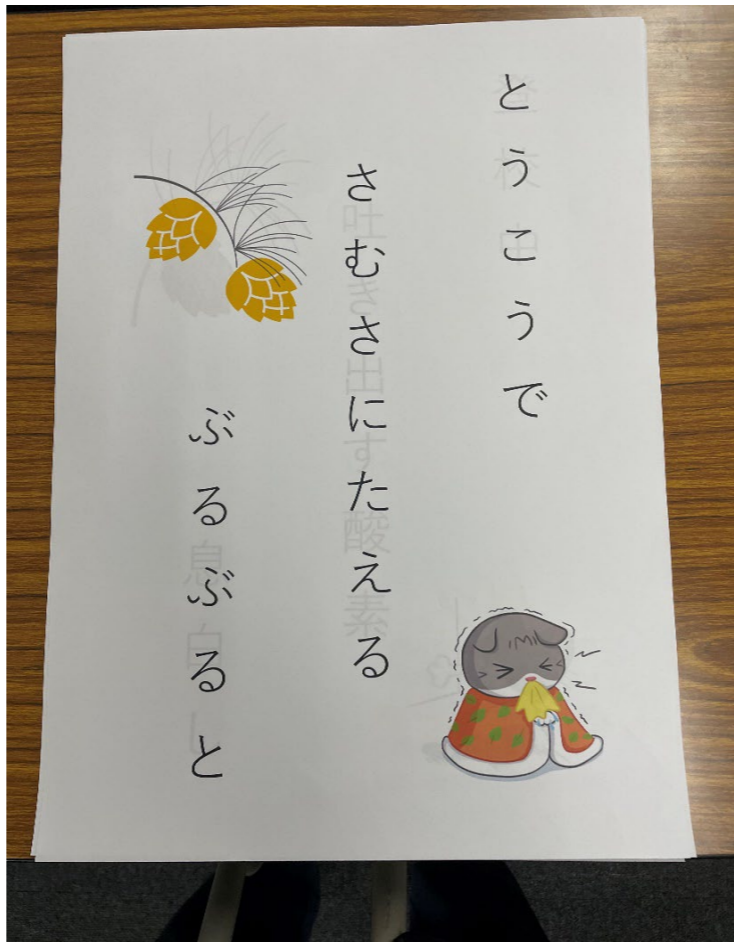 とうこうで
さむさにたえる
ぶるぶると